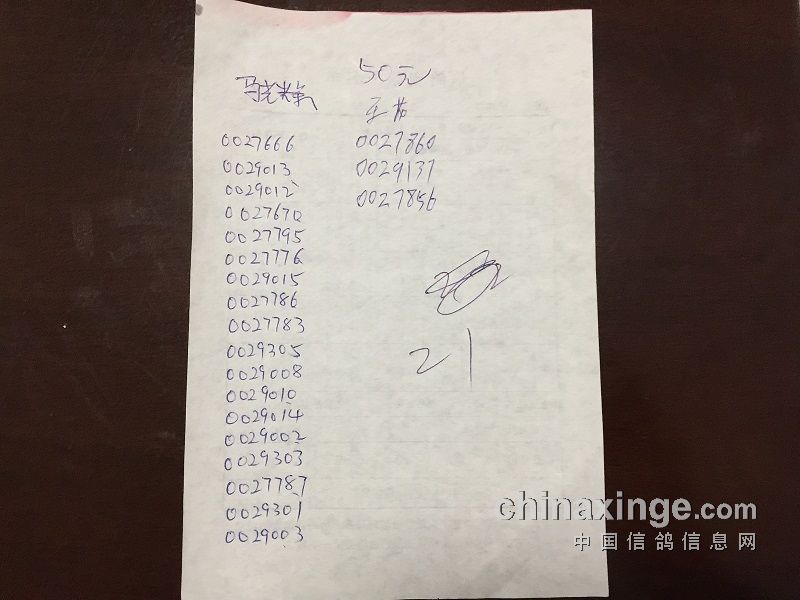 50元
0027666
0029013
0029012
0027670
0027795
0027776
0029015
0027786
0027783
0029305
0029008
0029010
0029014
0029002
0029303
0027787
0029301
0029003
0027860
0029137
0027856
21
chinaxinge.com
中国信鸽信息网